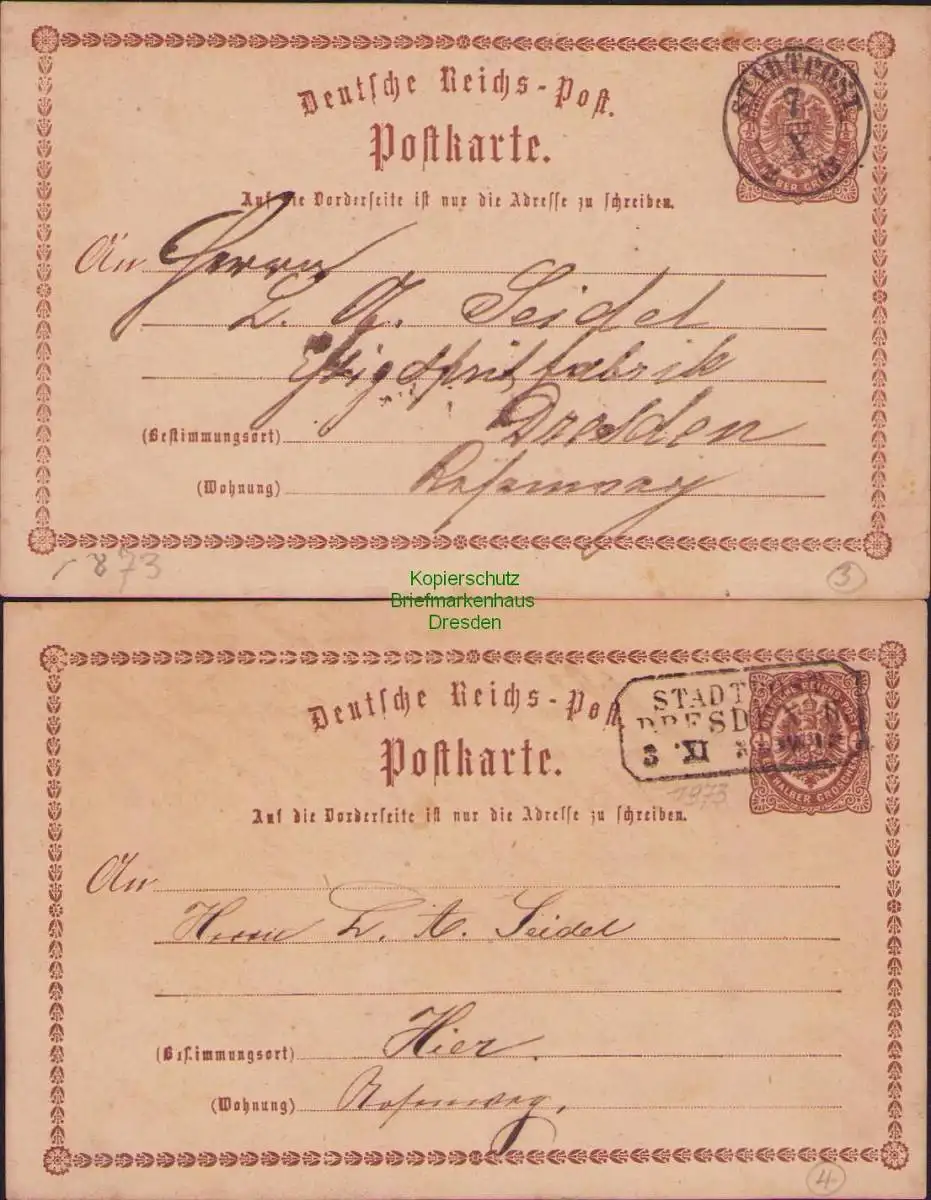 Deutsche Reichs-Post.
Postkarte.
Auf die Vorderseite ist nur die Adresse zu schreiben.
STADTPOST
7
X
An Herrn
L. A. Seidel
Dresden
(Bestimmungsort)
(Wohnung) Rosenweg
873
3
Kopierschutz
Briefmarkenhaus
Dresden
Deutsche Reichs-Post
Postkarte.
STADT
DRESD
3 XI
DEUTSCHE REICHS-POST
EIN HALBER GROSCHEN
1973
Auf die Vorderseite ist nur die Adresse zu schreiben.
An
Herrn L. A. Seidel
(Bestimmungsort) Hier.
(Wohnung) Rosenweg,
4